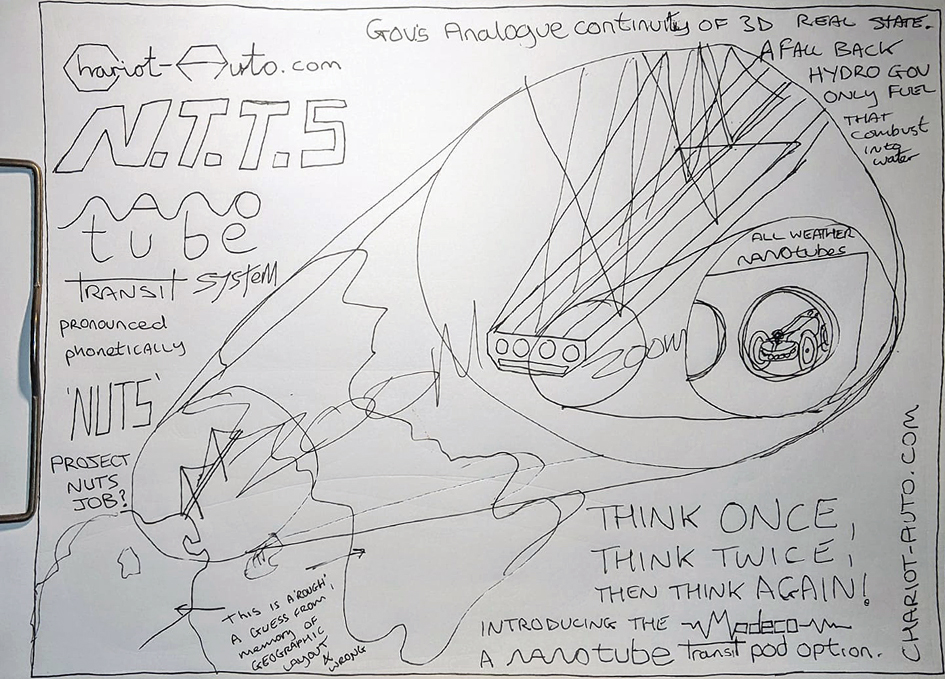 Gov's Analogue continuity of 3D REAL STATE.
A FALL BACK
HYDRO GOV
ONLY FUEL
THAT
combust
into
water
Chariot-Auto.com
N.T.T.S
nano
tube
TRANSIT SYSTEM
pronounced
phonetically
'NUTS'
PROJECT
NUTS
JOB?
ALL WEATHER
nanotubes
ZOOM
This is A 'ROUGH'
A GUESS FROM
memory OF
GEOGRAPHIC
LAYOUT &
WRONG
THINK ONCE,
THINK TWICE,
THEN THINK AGAIN!
INTRODUCING THE Modeco
A nanotube Transit pod option.
CHARIOT-AUTO.COM